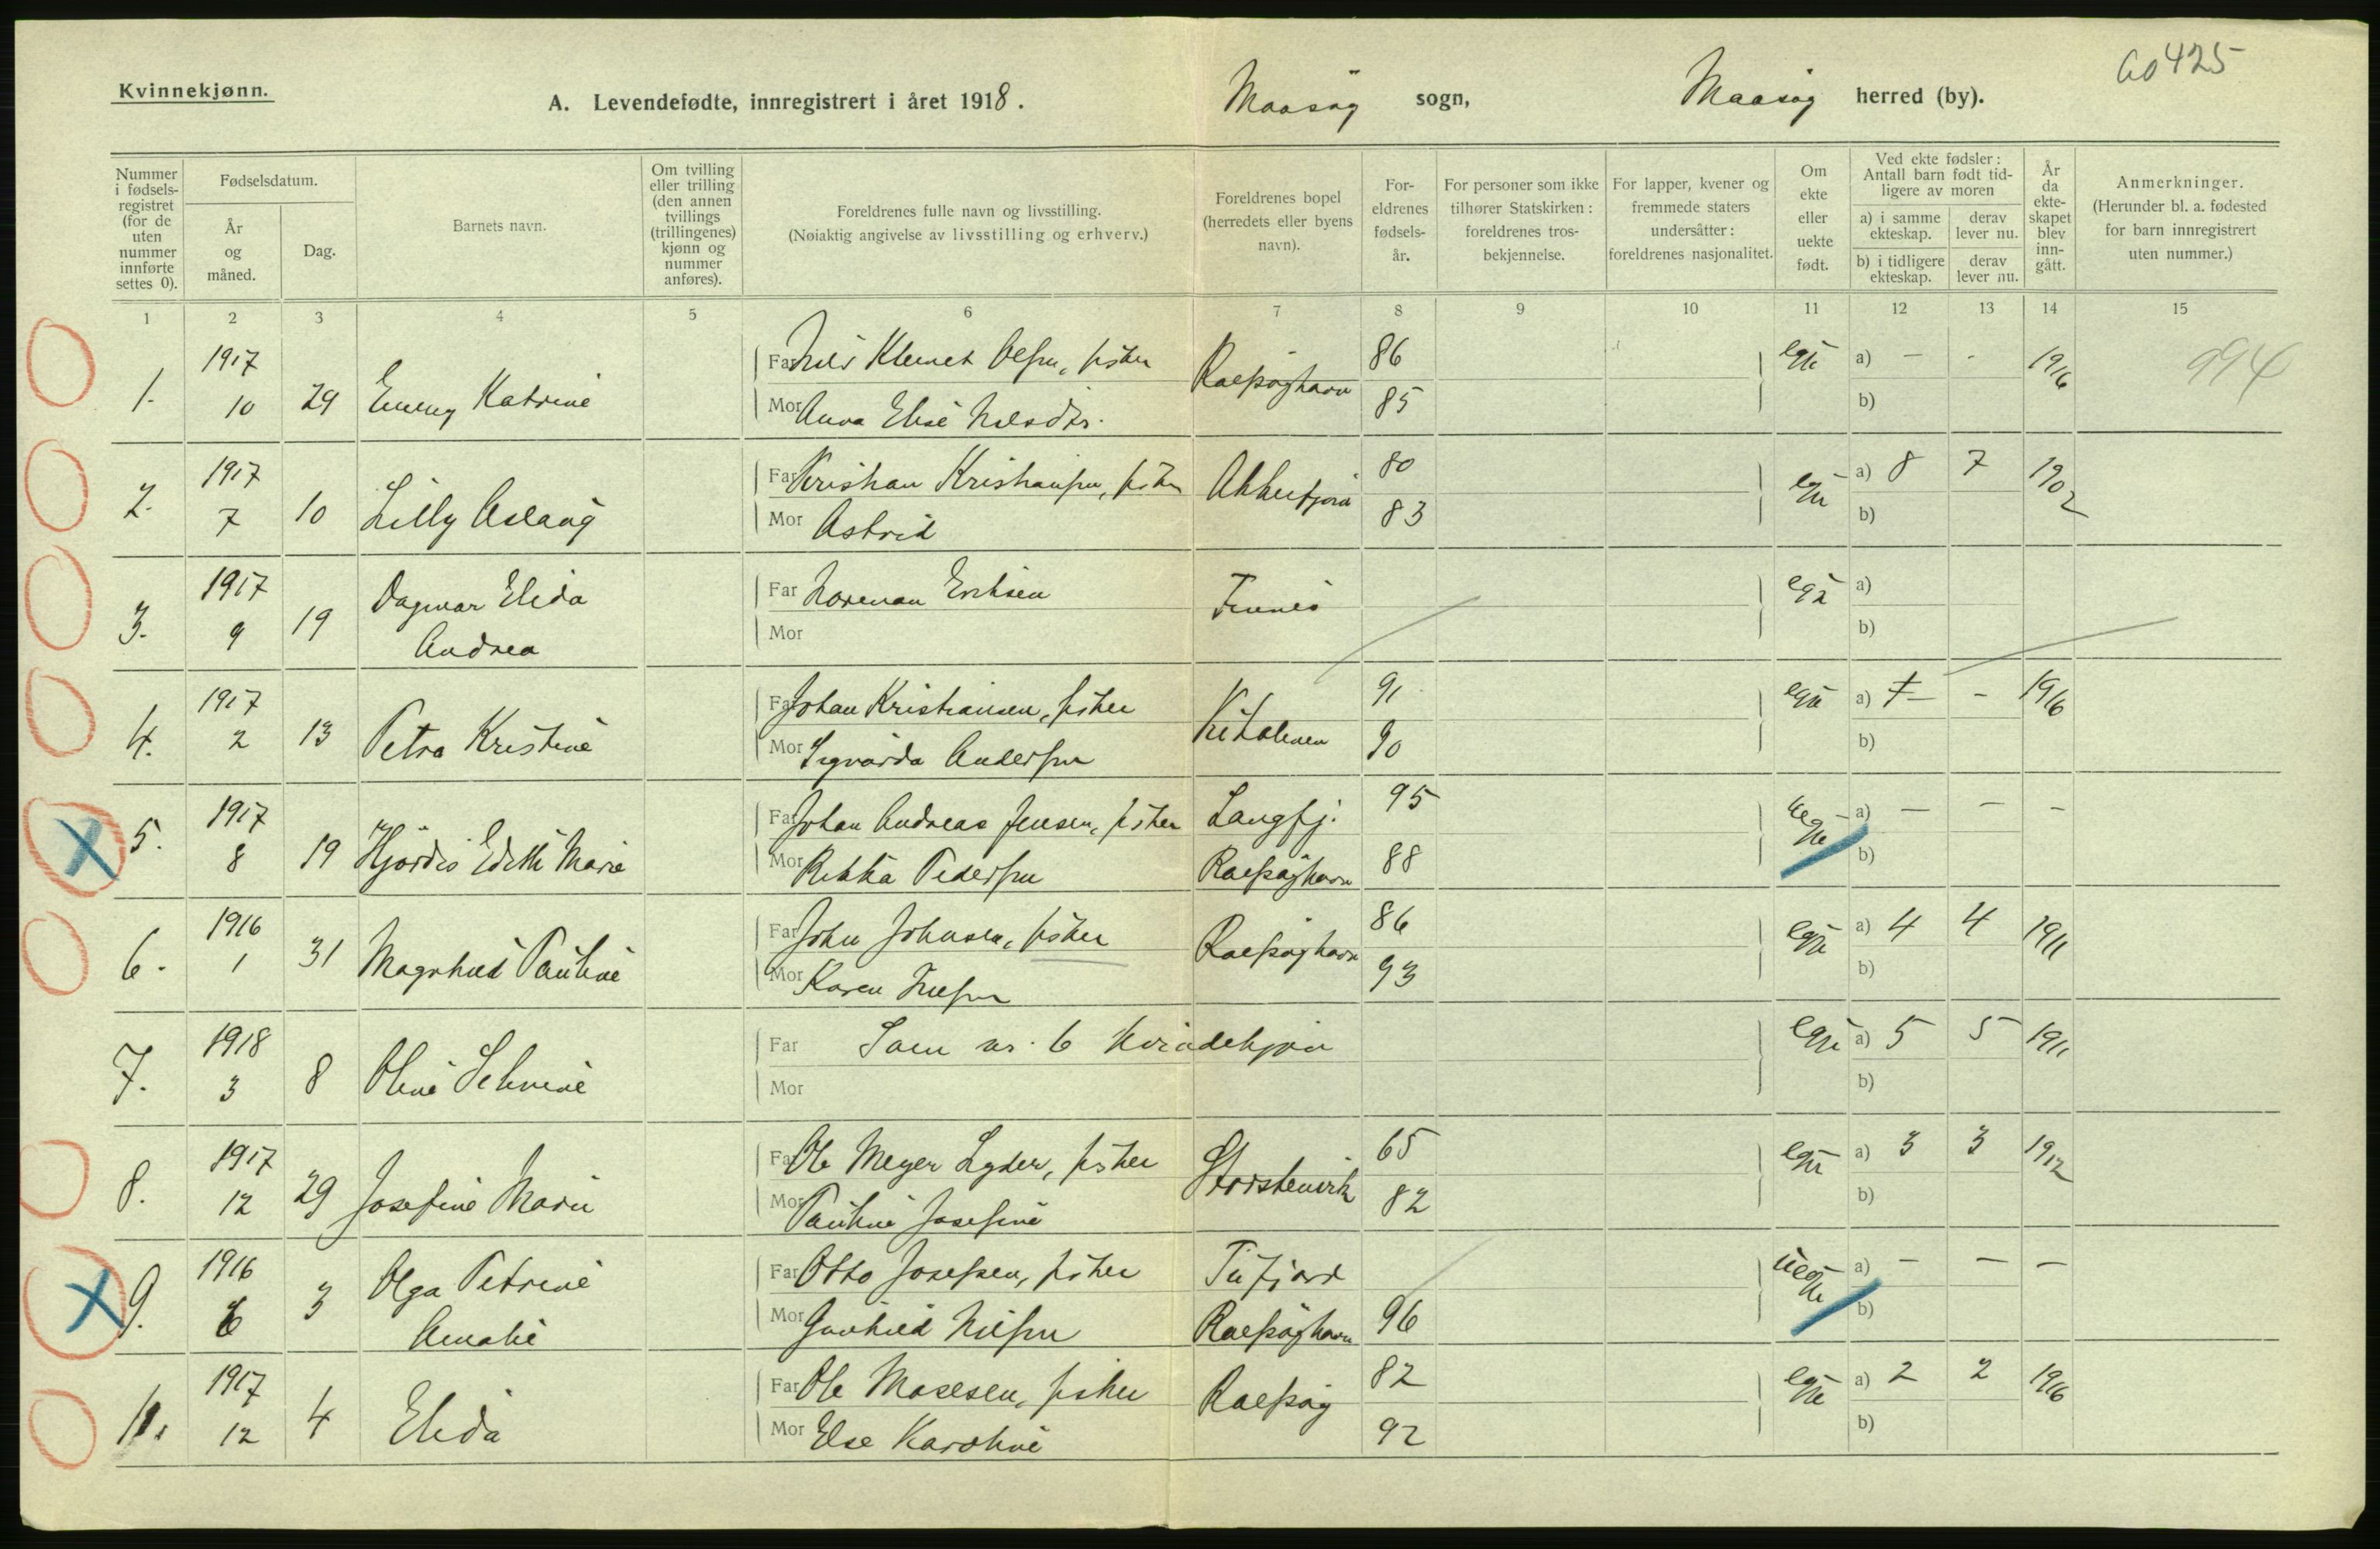 Kvinnekjønn.
A. Levendefødte, innregistrert i året 1918.
Maasøy sogn,
Maasøy herred (by).
60425
Nummer i fødsels-registret (for de uten nummer innførte settes 0).
Fødselsdatum.
År og måned.
Dag.
Barnets navn.
Om tvilling eller trilling (den annen tvillings (trillingenes) kjønn og nummer anføres).
Foreldrenes fulle navn og livsstilling.
(Nøiaktig angivelse av livsstilling og erhverv.)
Foreldrenes bopel (herredets eller byens navn).
For-eldrenes fødsels-år.
For personer som ikke tilhører Statskirken: foreldrenes tros-bekjennelse.
For lapper, kvener og fremmede staters undersåtter: foreldrenes nasjonalitet.
Om ekte eller uekte født.
Ved ekte fødsler: Antall barn født tid-ligere av moren
a) i samme ekteskap.
derav lever nu.
b) i tidligere ekteskap.
derav lever nu.
År da ekte-skapet blev inn-gått.
Anmerkninger.
(Herunder bl. a. fødested for barn innregistrert uten nummer.)
1 2 3 4 5 6 7 8 9 10 11 12 13 14 15
1. 1917 10 29 Emmy Katrine
Far Nils Klemet Olsen, fisker 86
Mor Anna Elise Nilsdtr. 85
Rolfsøyhavn
egte a) — - 1916 994
b)
2. 1917 7 10 Lilly Aslaug
Far Kristian Kristiansen, fisker 80
Mor Astrid 83
Akkerfjord
egte a) 8 7 1902
b)
3. 1917 9 19 Dagmar Elida Andrea
Far Norman Eriksen
Mor
Finnes
egte a)
b)
4. 1917 2 13 Petra Kristine
Far Johan Kristiansen, fisker 91
Mor Sigvarda Andersen 90
egte a) — - 1916
b)
5. 1917 8 19 Hjørdis Edith Marie
Far Johan Andreas Jensen, fisker Langfj. 95
Mor Rikka Pedersen Rolfsøyhavn 88
uegte a) — — —
b)
6. 1916 1 31 Magnhild Pauline
Far John Johnsen, fisker 86
Mor Karen Nilsen 93
Rolfsøyhavn
egte a) 4 4 1911
b)
7. 1918 3 8 Oline Selmine
Far Som nr. 6 kvindekjøn
Mor
egte a) 5 5 1911
b)
8. 1917 12 29 Josefine Marie
Far Ole Meyer Lyder, fisker 65
Mor Pauline Josefine 82
Storstenvik
egte a) 3 3 1912
b)
9. 1916 6 3 Olga Petrine Amalie
Far Otto Josefsen, fisker Tufjord
Mor Gunhild Nilsen Rolfsøyhavn 96
uegte a) — — —
b)
10. 1917 12 4 Elida
Far Ole Mosesen, fisker 82
Mor Else Karoline 92
Rolfsøy
egte a) 2 2 1916
b)